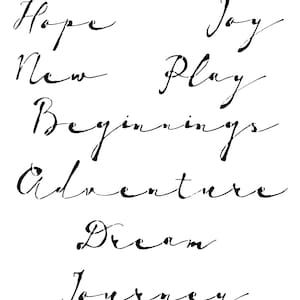 Hope Joy
New Play
Beginnings
Adventure
Dream
Journey